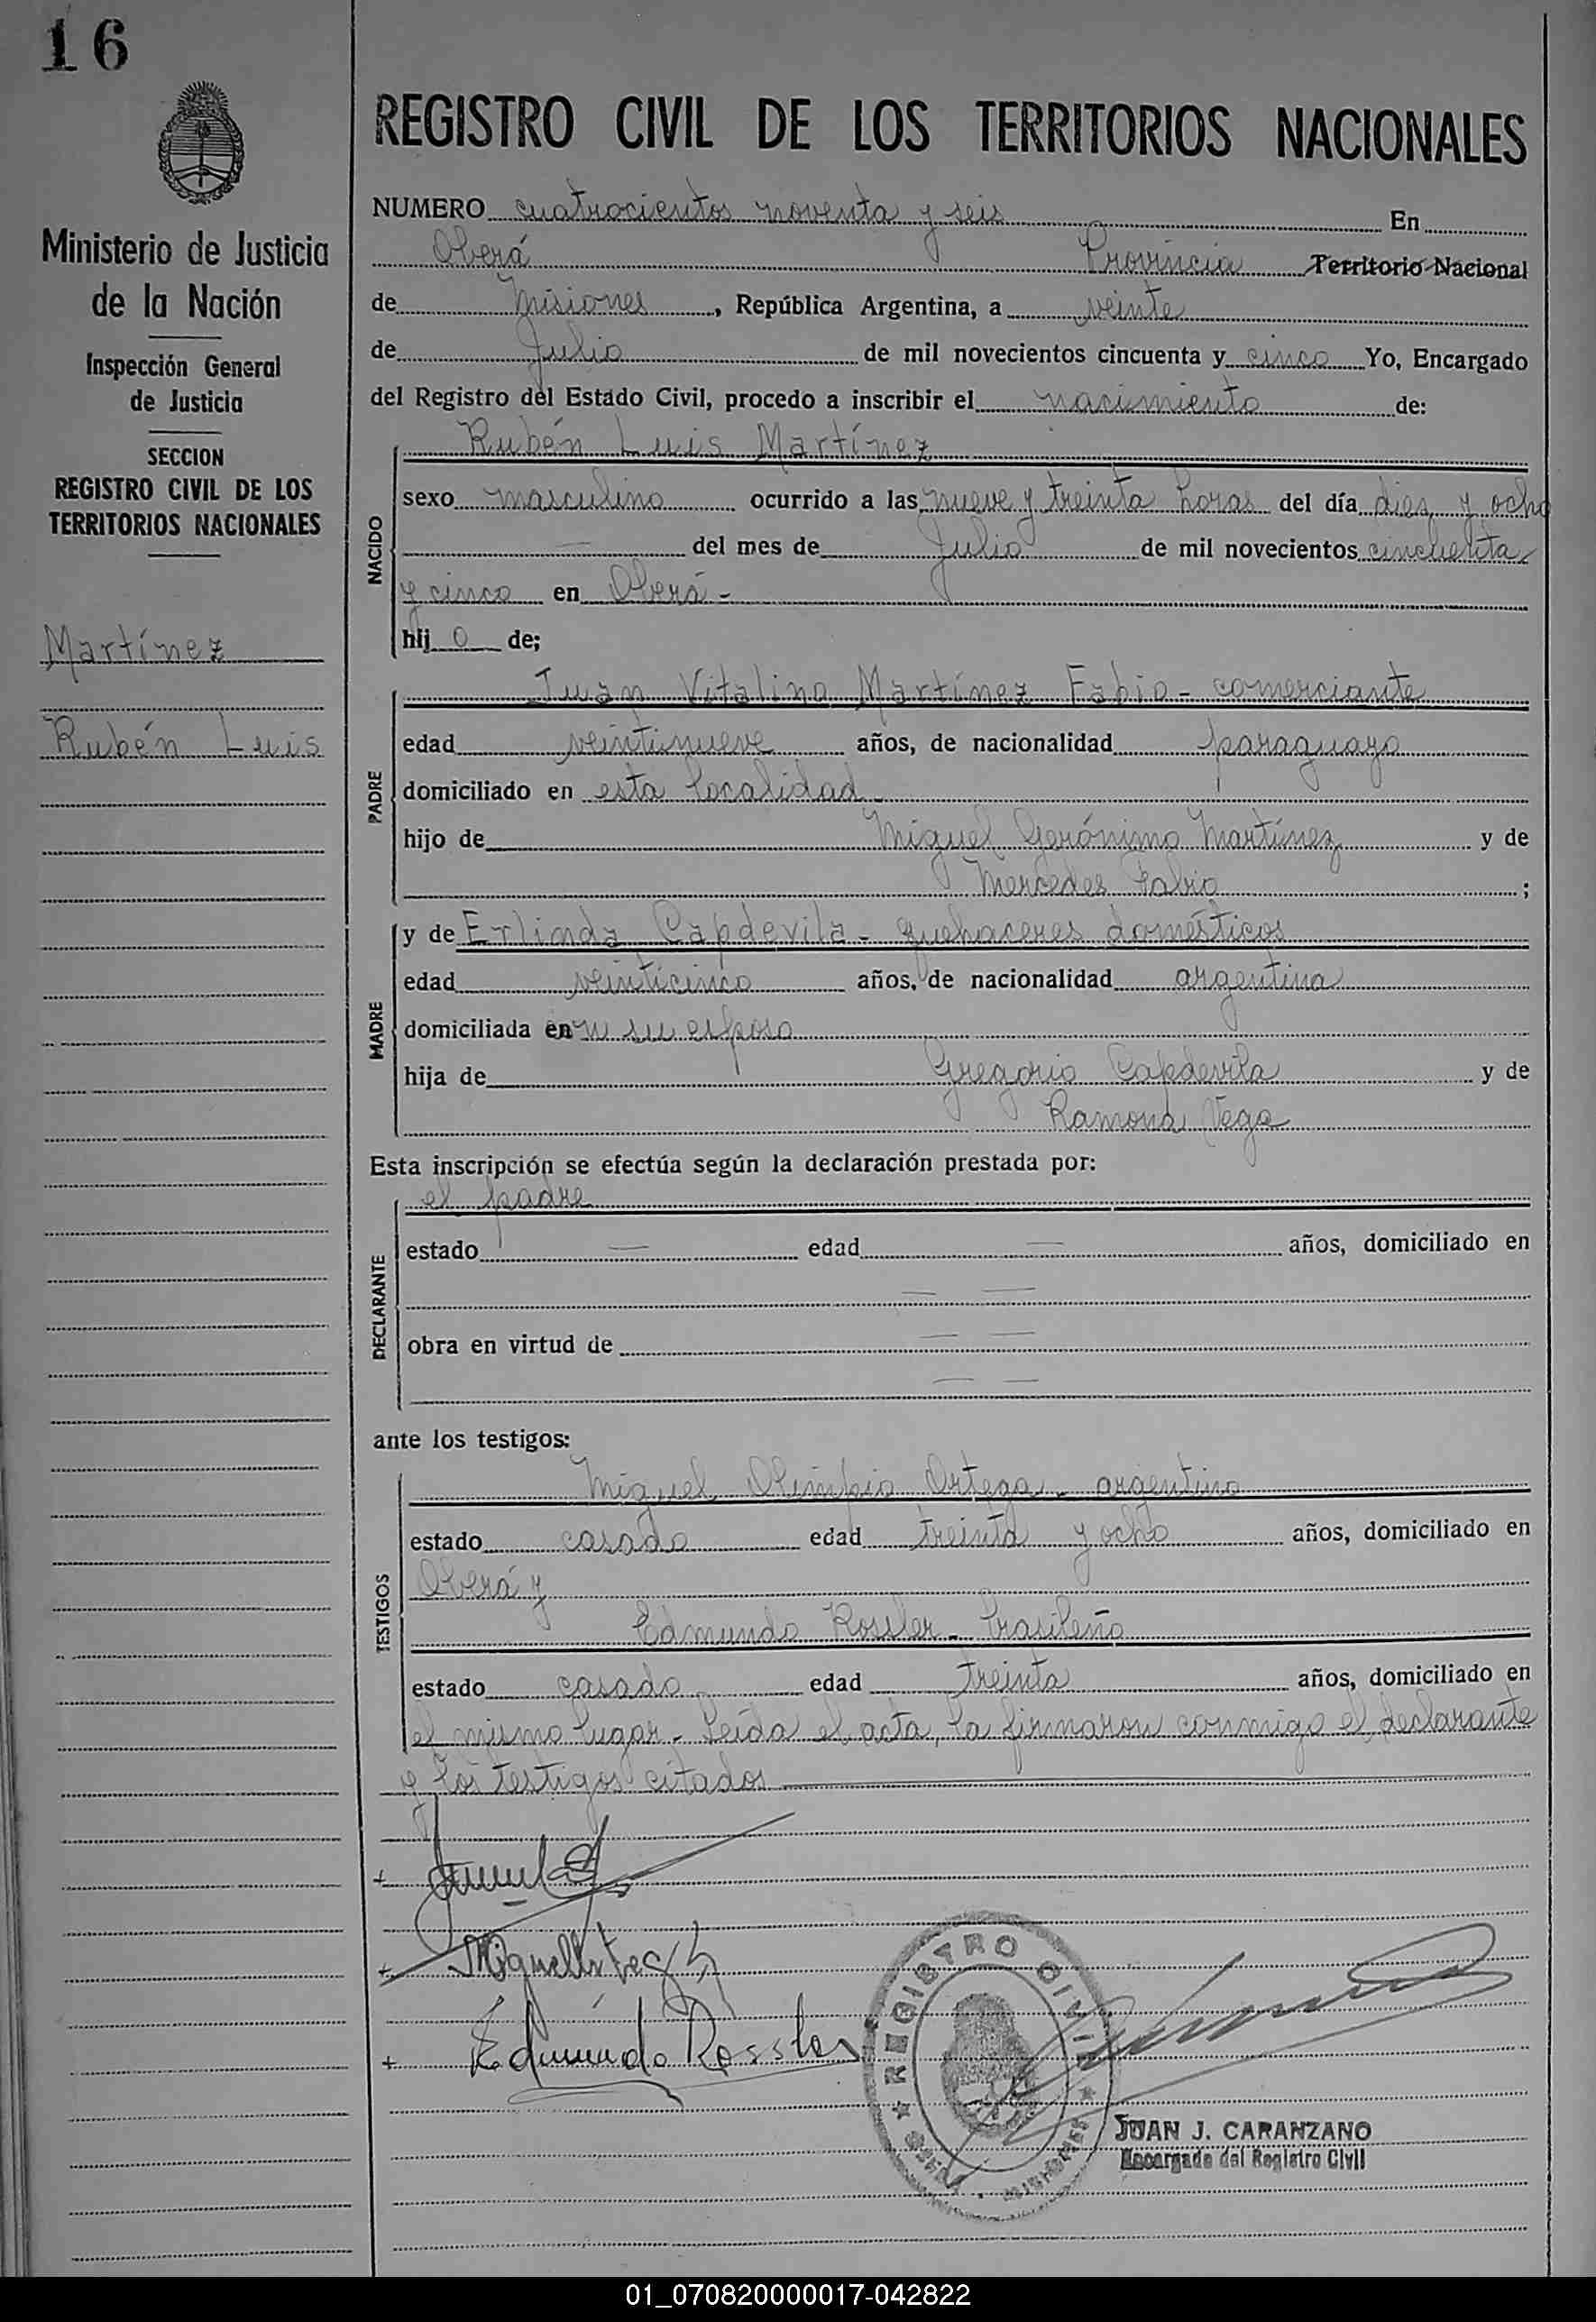 16
Ministerio de Justicia
de la Nación
Inspección General
de Justicia
SECCION
REGISTRO CIVIL DE LOS
TERRITORIOS NACIONALES
Martínez
Rubén Luis
REGISTRO CIVIL DE LOS TERRITORIOS NACIONALES
NUMERO cuatrocientos noventa y seis En
Oberá Provincia Territorio Nacional
de Misiones, República Argentina, a veinte
de Julio de mil novecientos cincuenta y cinco Yo, Encargado
del Registro del Estado Civil, procedo a inscribir el nacimiento de:
NACIDO
Rubén Luis Martínez
sexo masculino ocurrido a las nueve y treinta horas del día diez y ocho
— del mes de Julio de mil novecientos cincuenta
y cinco en Oberá -
hijo de;
PADRE
Juan Vitalino Martínez Fabio - comerciante
edad veintinueve años, de nacionalidad paraguayo
domiciliado en esta localidad -
hijo de Miguel Gerónimo Martínez y de
Mercedes Fabio ;
MADRE
y de Erlinda Capdevila - quehaceres domésticos
edad veinticinco años, de nacionalidad argentina
domiciliada en su esposo
hija de Gregorio Capdevila y de
Ramona Vega
Esta inscripción se efectúa según la declaración prestada por:
DECLARANTE
el padre
estado — edad — años, domiciliado en
— —
obra en virtud de — —
— —
ante los testigos:
TESTIGOS
Miguel Olimpio Ortega - argentino
estado casado edad treinta y ocho años, domiciliado en
Oberá y
Edmundo Rossler - brasileño
estado casado edad treinta años, domiciliado en
el mismo lugar - Leída el acta, la firmaron conmigo el declarante
y los testigos citados
+
+ Miguel Ortega
+ Edmundo Rossler
REGISTRO CIVIL
MISIONES
JUAN J. CARANZANO
Encargado del Registro Civil
01_070820000017-042822